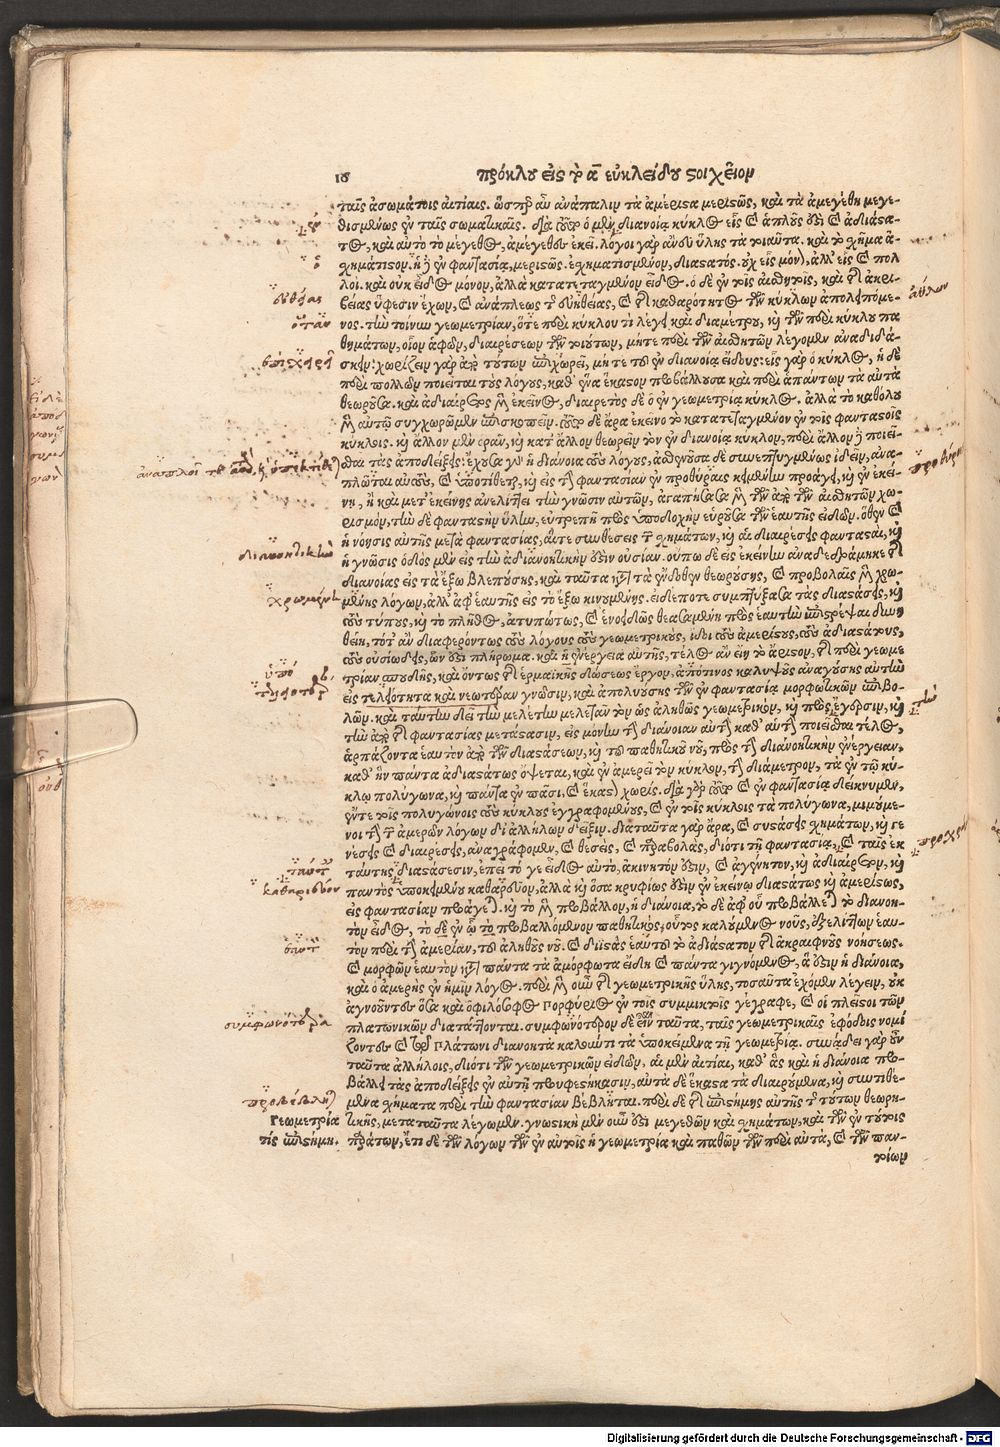 18 πρόκλου εἰς τὸ α̅ εὐκλείδου στοιχεῖον
ταῖς ἀσωμάτοις αἰτίαις. ὥσπερ αὖ ἀνάπαλιν τὰ ἀμέριστα μεριστῶς, καὶ τὰ ἀμεγέθη μεγε-
θυσμένως ἐν ταῖς σωματικαῖς. διὰ τοῦτο ὁ μὲν διανοίᾳ κύκλος εἷς καὶ ἁπλοῦς ἐστὶ καὶ ἀδιάστα-
τος, καὶ αὐτὸ τὸ μέγεθος, ἀμέγεθες ἐκεῖ. λόγοι γὰρ ἄνευ ὕλης τὰ τοιαῦτα. καὶ τὸ σχῆμα ἀ-
σχημάτιστον. ἢ δὲ ἐν φαντασίᾳ, μεριστῶς. ἐσχηματισμένον, διαστατός. οὐχ εἷς μόνον, ἀλλ' εἷς καὶ πολ
λοί. καὶ οὐκ εἶδος μόνον, ἀλλὰ κατατεταγμένον εἶδος. ὁ δὲ ἐν τοῖς αἰσθητοῖς, καὶ τῆς ἀκρι-
βείας ὕφεσιν ἔχων, καὶ ἀνάπλεως τῆς συνηθείας, καὶ τῆς καθαρότητος τῶν κύκλων ἀπολειπόμε-
νος. τὴν τοίνυν γεωμετρίαν, ὅτε περὶ κύκλου τὶ λέγει καὶ διαμέτρου, καὶ τῶν περὶ κύκλου πα
θημάτων, οἷον ἁφῶν, διαιρέσεων τῶν τοιούτων, μήτε περὶ τῶν αἰσθητῶν λέγομεν ἀναδιδά-
σκειν: χωρίζειν γὰρ ἀπὸ τούτων ἐπιχωρεῖ, μήτε τοῦ ἐν διανοίᾳ εἴδους: εἷς γὰρ ὁ κύκλος, ἡ δὲ
περὶ πολλῶν ποιεῖται τοὺς λόγους, καθ' ἕνα ἕκαστον προβάλλουσα καὶ περὶ ἁπάντων τὰ αὐτὰ
θεωροῦσα. καὶ ἀδιαίρετος μὲν ἐκεῖνος, διαιρετὸς δὲ ὁ ἐν γεωμετρίᾳ κύκλος. ἀλλὰ τὸ καθόλου
μὲν αὐτῷ συγχωρῶμεν ἐπισκοπεῖν. τοῦτο δὲ ἄρα ἐκεῖνο τὸ κατατεταγμένον ἐν τοῖς φανταστοῖς
κύκλοις. καὶ ἄλλον μὲν ὁρᾶν, καὶ κατ' ἄλλον θεωρεῖν τὸν ἐν διανοίᾳ κύκλον, περὶ ἄλλον δὲ ποιεῖ-
σθαι τὰς ἀποδείξεις: ἔχουσα γὰρ ἡ διάνοια τοὺς λόγους, ἀσθενοῦσα δὲ συνεπτυγμένως ἰδεῖν, ἀνα-
πλοῦται αὐτοὺς, καὶ ὑποτίθεται, καὶ εἰς τὴν φαντασίαν ἐν προθύραις κειμένην προάγει, καὶ ἐν ἐκεί-
νῃ, ἢ καὶ μετ' ἐκείνης ἀνελίττει τὴν γνῶσιν αὐτῶν, ἀγαπήσασα μὲν τὸν ἀπὸ τῶν αἰσθητῶν χω-
ρισμόν, τὴν δὲ φανταστὴν ὕλην, εὐτρεπῆ πρὸς ὑποδοχὴν εὑροῦσα τῶν ἑαυτῆς εἰδῶν. ὅθεν καὶ
ἡ νόησις αὐτῆς μετὰ φαντασίας, αἵτε συνθέσεις τῶν σχημάτων, καὶ αἱ διαιρέσεις φαντασταὶ, καὶ
ἡ γνῶσις ὁδὸς μὲν εἰς τὴν ἀδιανοητικὴν ἐστὶν οὐσίαν. οὔπω δὲ εἰς ἐκείνην ἀναδεδράμηκε τῆς
διανοίας εἰς τὰ ἔξω βλεπούσης, καὶ ταῦτα κατὰ τὰ ἔνδοθεν θεωρούσης, καὶ προβολαῖς μὲν χρω-
μένης λόγων, ἀλλ' ἀφ' ἑαυτῆς εἰς τὸ ἔξω κινουμένης. εἰ δέποτε συμπτύξασα τὰς διαστάσεις, καὶ
τοὺς τύπους, καὶ τὸ πλῆθος, ἀτυπώτως, καὶ ἑνοειδῶς θεασαμένη πρὸς ἑαυτὴν ἐπιστρέψαι δυνη
θείη, τότ' ἂν διαφερόντως τοὺς λόγους τοὺς γεωμετρικοὺς, ἴδοι τοὺς ἀμερίστους, τοὺς ἀδιαστάτους,
τοὺς οὐσιώδεις, ὧν ἐστὶ πλήρωμα. καὶ ἡ ἐνέργεια αὐτῆς, τέλος ἂν εἴη τὸ ἄριστον, τῆς περὶ γεωμε
τρίαν σπουδῆς, καὶ ὄντως τῆς ἑρμαϊκῆς δόσεως ἔργον, ἀπότινος καλυψοῦς ἀναγούσης αὐτὴν
εἰς τελειότητα καὶ νεωτέραν γνῶσιν, καὶ ἀπολυούσης τῶν ἐν φαντασίᾳ μορφωτικῶν ἐπιβο-
λῶν. καὶ ταύτην δεῖ τὴν μελέτην μελετᾶν τὸν ὡς ἀληθῶς γεωμετρικὸν, καὶ πρὸς ἔγερσιν, καὶ
τὴν ἀπὸ τῆς φαντασίας μετάστασιν, εἰς μόνην τὴν διάνοιαν αὐτὴν καθ' αὑτὴν ποιεῖσθαι τέλος,
ἁρπάζοντα ἑαυτὸν ἀπὸ τῶν διαστάσεων, καὶ τοῦ παθητικοῦ νοῦ, πρὸς τὴν διανοητικὴν ἐνέργειαν,
καθ' ἣν πάντα ἀδιαστάτως ὄψεται, καὶ ἐν ἀμερεῖ τὸν κύκλον, τὴν διάμετρον, τὰ ἐν τῷ κύ-
κλῳ πολύγωνα, καὶ πάντα ἐν πᾶσι, καὶ ἕκαστον χωρίς. διὰ γὰρ τοῦτο καὶ ἐν φαντασίᾳ δείκνυμεν,
ἔντε τοῖς πολυγώνοις τοὺς κύκλους ἐγγραφομένους, καὶ ἐν τοῖς κύκλοις τὰ πολύγωνα, μιμούμε-
νοι τὴν τῶν ἀμερῶν λόγων δι' ἀλλήλων δεῖξιν. διὰ ταῦτα γὰρ ἄρα, καὶ συστάσεις σχημάτων, καὶ γε
νέσεις καὶ διαιρέσεις, ἀναγράφομεν, καὶ θέσεις, καὶ παραβολὰς, διότι τῇ φαντασίᾳ, καὶ ταῖς ἐκ
ταύτης διαστάσεσιν, ἐπεὶ τό γε εἶδος αὐτὸ, ἀκίνητόν ἐστιν, καὶ ἀγένητον, καὶ ἀδιαίρετον, καὶ
παντὸς ὑποκειμένου καθαρεῦον, ἀλλὰ καὶ ὅσα κρυφίως ἐστὶν ἐν ἐκείνῳ διαστάτως καὶ ἀμερίστως,
εἰς φαντασίαν προάγεται. καὶ τὸ μὲν προβάλλον, ἡ διάνοια, τὸ δὲ ἀφ' οὗ προβάλλεται τὸ διανοη-
τὸν εἶδος, τὸ δὲ ἐν ᾧ τὸ προβαλλόμενον παθητικὸς, οὗτος καλούμενος νοῦς, ἐξελίττων ἑαυ-
τὸν περὶ τὴν ἀμερίαν, τοῦ ἀληθοῦς νοῦ. καὶ διϊστὰς ἑαυτοῦ τὸ ἀδιάστατον τῆς ἀκραιφνοῦς νοήσεως.
καὶ μορφῶν ἑαυτὸν κατὰ πάντα τὰ ἀμόρφωτα εἴδη καὶ πάντα γιγνόμενος, ἅ ἐστιν ἡ διάνοια,
καὶ ὁ ἀμερὴς ἐν ἡμῖν λόγος. περὶ μὲν οὖν τῆς γεωμετρικῆς ὕλης, τοσαῦτα ἔχομεν λέγειν, οὐκ
ἀγνοοῦντες ὅσα καὶ ὁ φιλόσοφος Πορφύριος ἐν τοῖς συμμικτοῖς γέγραφε, καὶ οἱ πλεῖστοι τῶν
πλατωνικῶν διατάττονται. συμφωνότερον δὲ εἶναι ταῦτα, ταῖς γεωμετρικαῖς ἐφόδοις νομί
ζοντες καὶ τῷ Πλάτωνι διανοητὰ καλοῦντι τὰ ὑποκείμενα τῇ γεωμετρίᾳ. συνᾴδει γὰρ οὖν
ταῦτα ἀλλήλοις, διότι τῶν γεωμετρικῶν εἰδῶν, αἱ μὲν αἰτίαι, καθ' ἃς καὶ ἡ διάνοια προ-
βάλλει τὰς ἀποδείξεις ἐν αὐτῇ προϋφεστήκασιν, αὐτὰ δὲ ἕκαστα τὰ διαιρούμενα, καὶ συντιθέ-
μενα σχήματα περὶ τὴν φαντασίαν βέβληται. περὶ δὲ τῆς ἐπιστήμης αὐτῆς τῆς τούτων θεωρη-
τικῆς, μετὰ ταῦτα λέγωμεν. γνωστικὴ μὲν οὖν ἐστὶ μεγεθῶν καὶ σχημάτων, καὶ τῶν ἐν τούτοις
περάτων, ἔτι δὲ τῶν λόγων τῶν ἐν αὐτοῖς ἡ γεωμετρία καὶ παθῶν τῶν περὶ αὐτά, καὶ τῶν παν-
τοίων
Γεωμετρία
τίς ἐπιστήμη.
ἐν
ὁ
συνθέσεις
ὅταν
διανοητικὴν
χρωμένη
ὑπό
καθαρεῦον
συμφωνότερα
προβέβληται
ἄλλων
προθύροις
τὴν